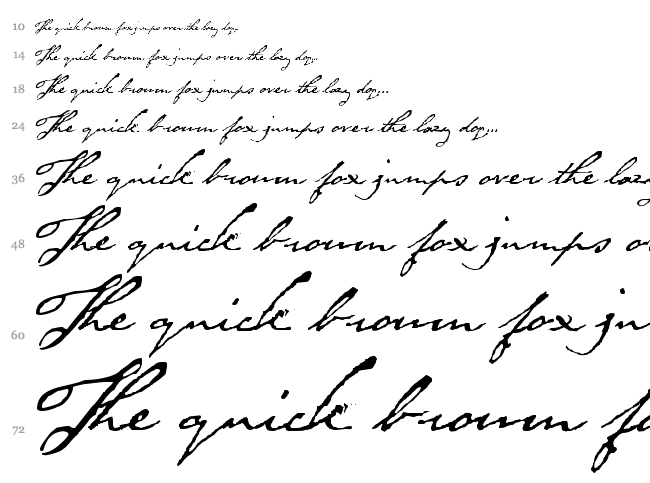 10 The quick brown fox jumps over the lazy dog...
14 The quick brown fox jumps over the lazy dog...
18 The quick brown fox jumps over the lazy dog...
24 The quick brown fox jumps over the lazy dog...
36 The quick brown fox jumps over the lazy
48 The quick brown fox jumps o
60 The quick brown fox ju
72 The quick brown fo